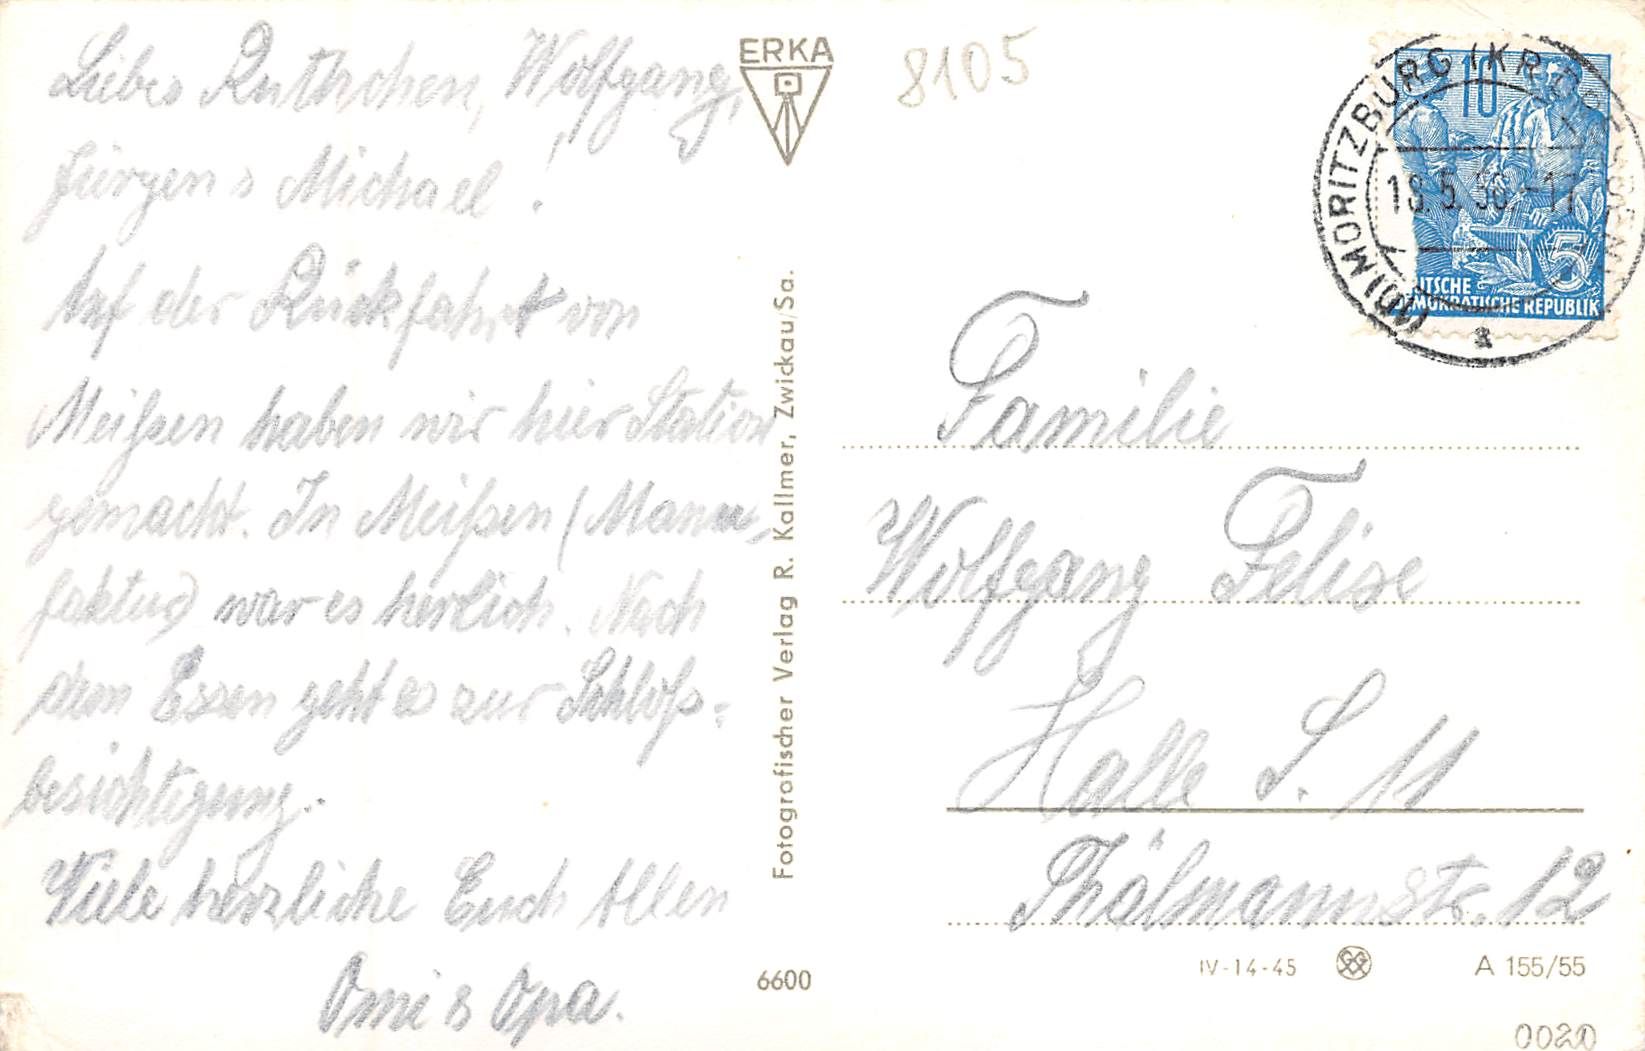 Liebes Ruthchen, Wolfgang,
Jürgen & Michael!
Auf der Rückfahrt von
Meißen haben wir hier Station
gemacht. In Meißen (Manu-
faktur) war es herrlich. Nach
dem Essen geht es zur Schloß-
besichtigung.
Viele herzliche Euch Allen
Omi & Opa.
ERKA
8105
Fotografischer Verlag R. Kallmer, Zwickau/Sa.
6600
MORITZBURG (KR
18.5.56.-17
a
10
5
DEMOKRATISCHE REPUBLIK
Familie
Wolfgang Felise
Halle S. 11
Thälmannstr. 12
IV-14-45
A 155/55
0020